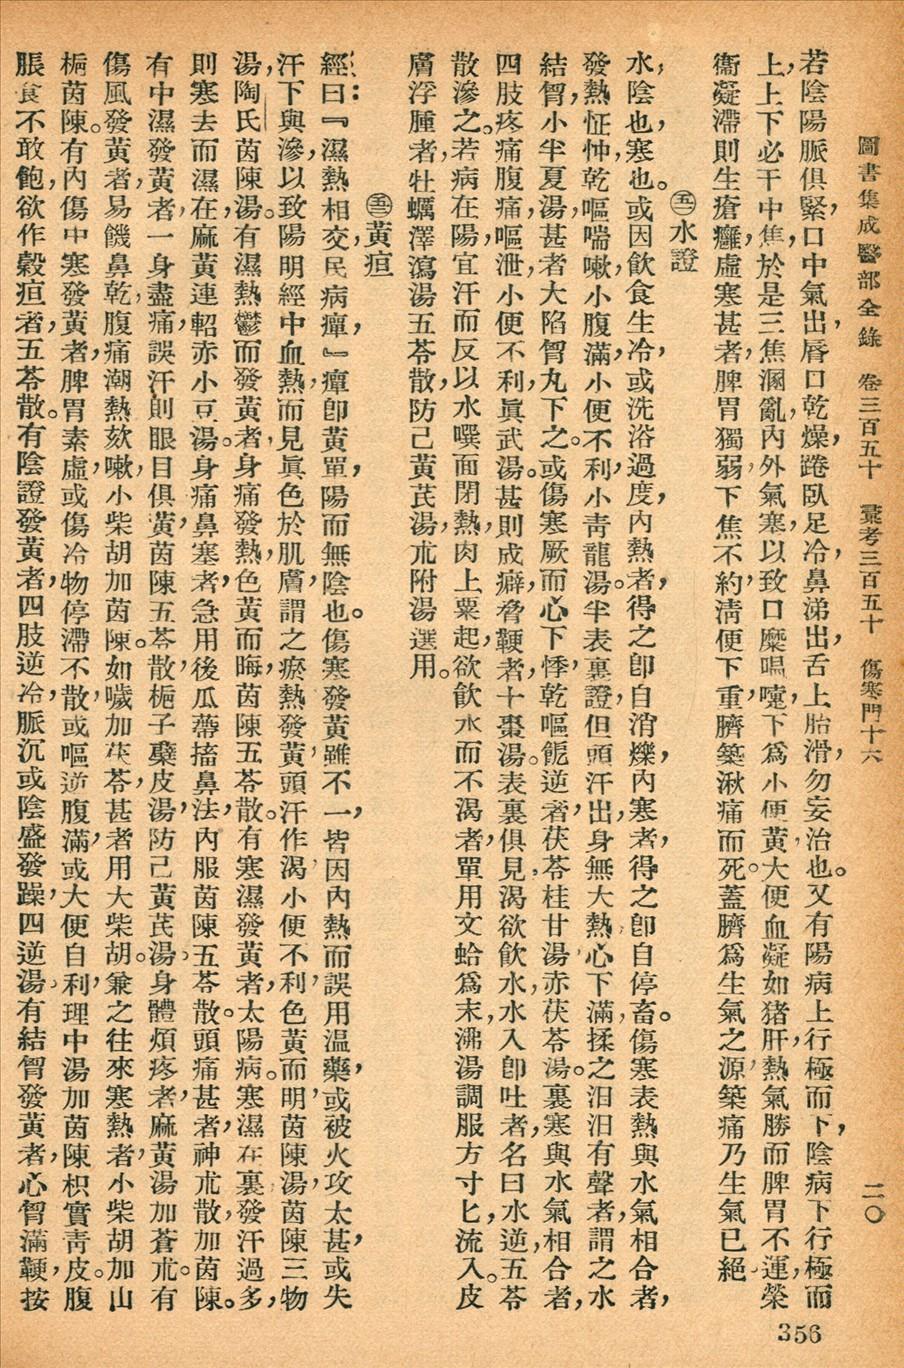 圖書集成醫部全錄　卷三百五十　彙考三百五十　傷寒門十六　二〇
356
若陰陽脈俱緊，口中氣出，唇口乾燥，踡臥足冷，鼻涕出，舌上胎滑，勿妄治也。又有陽病上行極而下，陰病下行極而
上，上下必干中焦，於是三焦溷亂，內外氣塞，以致口糜喎嚏，下爲小便黃，大便血凝如猪肝，熱氣勝而脾胃不運，榮
衞凝滯則生瘡癰，虛寒甚者，脾胃獨弱，下焦不約，淸便下重，臍築湫痛而死。蓋臍爲生氣之源，築痛乃生氣已絕
㊄水證
水，陰也，寒也。或因飲食生冷，或洗浴過度，內熱者，得之卽自消爍，內寒者，得之卽自停畜。傷寒表熱與水氣相合者，
發熱怔忡，乾嘔喘嗽，小腹滿，小便不利，小靑龍湯。半表裏證，但頭汗出，身無大熱，心下滿，揉之汨汨有聲者，謂之水
結胷，小半夏湯，甚者大陷胷丸下之。或傷寒厥而心下悸，乾嘔呃逆者，茯苓桂甘湯，赤茯苓湯。裏寒與水氣相合者，
四肢疼痛腹痛，嘔泄，小便不利，眞武湯。甚則成癖脅鞕者，十棗湯。表裏俱見，渴欲飲水，水入卽吐者，名曰水逆，五苓
散滲之。若病在陽，宜汗而反以水噀面閉熱，肉上粟起，欲飲水而不渴者，單用文蛤爲末，沸湯調服方寸匕，流入。皮
膚浮腫者，牡蠣澤瀉湯，五苓散，防己黃芪湯，朮附湯選用。
㊄黃疸
經曰：『濕熱相交，民病癉，』癉卽黃單，陽而無陰也。傷寒發黃雖不一，皆因內熱而誤用溫藥，或被火攻太甚，或失
汗下與滲，以致陽明經中血熱，而見眞色於肌膚，謂之瘀熱發黃，頭汗作渴，小便不利，色黃而明，茵陳湯，茵陳三物
湯，陶氏茵陳湯。有濕熱鬱而發黃者，身痛發熱，色黃而晦，茵陳五苓散。有寒濕發黃者，太陽病。寒濕在裏，發汗過多，
則寒去而濕在，麻黃連軺赤小豆湯。身痛鼻塞者，急用後瓜蔕搐鼻法，內服茵陳五苓散。頭痛甚者，神朮散，加茵陳。
有中濕發黃者，一身盡痛，誤汗則眼目俱黃，茵陳五苓散，梔子蘗皮湯，防己黃芪湯，身體煩疼者，麻黃湯加蒼朮。有
傷風發黃者，易饑鼻乾，腹痛潮熱欬嗽，小柴胡加茵陳。如噦加茯苓，甚者用大柴胡。兼之往來寒熱者，小柴胡加山
梔茵陳。有內傷中寒發黃者，脾胃素虛，或傷冷物，停滯不散，或嘔逆腹滿，或大便自利，理中湯加茵陳枳實靑皮。腹
脹食不敢飽，欲作穀疸者，五苓散。有陰證發黃者，四肢逆冷，脈沉或陰盛發躁，四逆湯。有結胷發黃者，心胷滿鞕，按